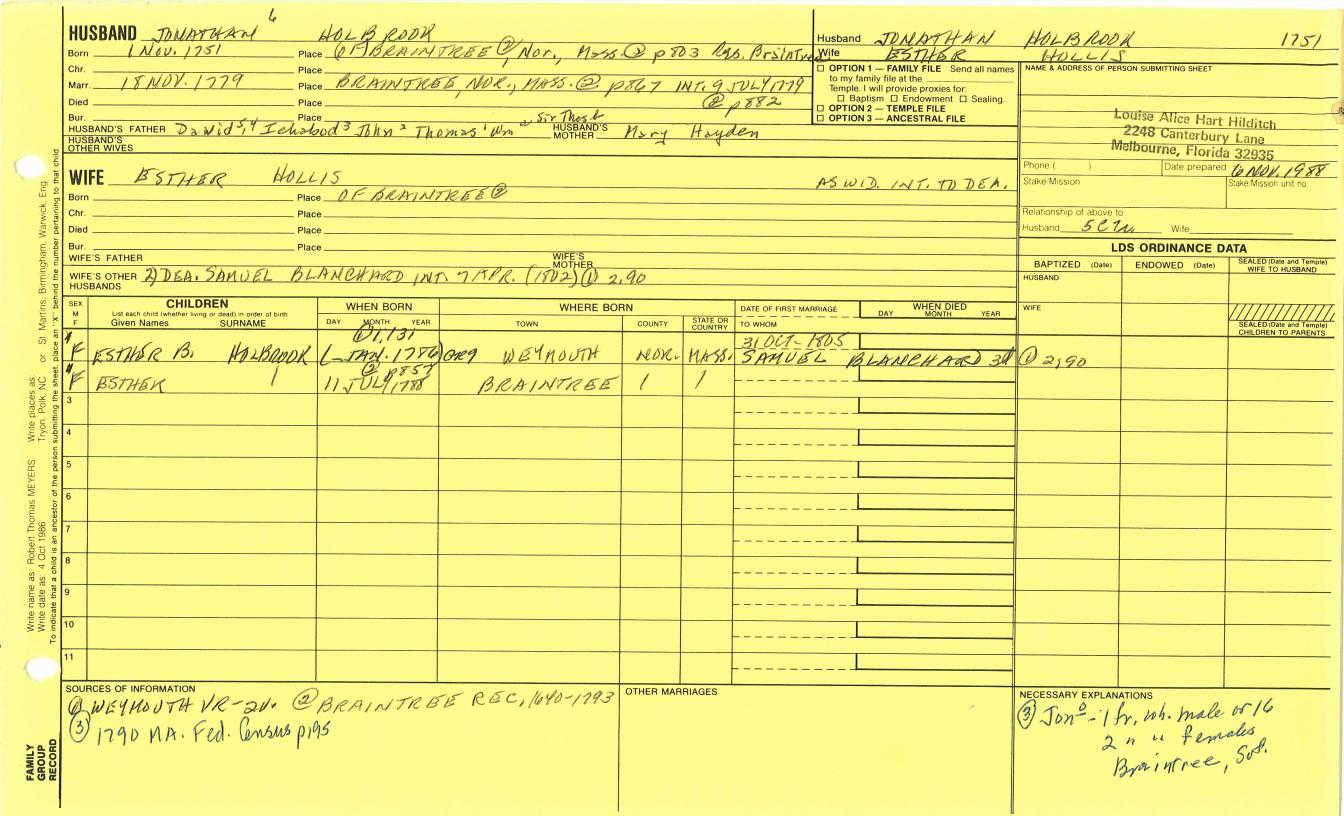 6
HUSBAND JONATHAN HOLBROOK
Born 1 NOV. 1751 Place OF BRAINTREE②, Nor., Mass.② p803 Rgs. Braintree
Chr. Place
Marr. 18 NOV. 1779 Place BRAINTREE, NOR., MASS.② p867 INT. 9 JULY 1779
Died Place ② p882
Bur. Place Sir Thos
HUSBAND'S FATHER David 5,4 Ichabod 3 John 2 Thomas 1 Wm HUSBAND'S MOTHER Mary Hayden
HUSBAND'S OTHER WIVES
Husband JONATHAN HOLBROOK 1751
Wife ESTHER HOLLIS
☐ OPTION 1 — FAMILY FILE Send all names
to my family file at the
Temple. I will provide proxies for:
☐ Baptism ☐ Endowment ☐ Sealing.
☐ OPTION 2 — TEMPLE FILE
☐ OPTION 3 — ANCESTRAL FILE
NAME & ADDRESS OF PERSON SUBMITTING SHEET
Louise Alice Hart Hilditch
2248 Canterbury Lane
Melbourne, Florida 32935
Phone ( ) Date prepared 6 NOV. 1988
Stake/Mission Stake/Mission unit no.
Relationship of above to
Husband Wife
WIFE ESTHER HOLLIS AS WID. INT. TO DEA.
Born Place OF BRAINTREE②
Chr. Place
Died Place
Bur. Place
WIFE'S FATHER WIFE'S MOTHER
WIFE'S OTHER HUSBANDS 2) DEA. SAMUEL BLANCHARD INT. 7 APR. (1802) ① 2,90
LDS ORDINANCE DATA
BAPTIZED (Date) ENDOWED (Date) SEALED (Date and Temple) WIFE TO HUSBAND
HUSBAND
WIFE
SEALED (Date and Temple) CHILDREN TO PARENTS
SEX M F CHILDREN List each child (whether living or dead) in order of birth Given Names SURNAME
WHEN BORN DAY MONTH YEAR
WHERE BORN TOWN COUNTY STATE OR COUNTRY
DATE OF FIRST MARRIAGE TO WHOM
WHEN DIED DAY MONTH YEAR
① 1,131 31 OCT. 1805
1 F ESTHER B. HOLBROOK (— JAN. 1786) WEYMOUTH NOR. MASS. SAMUEL BLANCHARD 3d ① 2,90
② p853
F ESTHER 11 JULY 1788 BRAINTREE
3
4
5
6
7
8
9
10
11
SOURCES OF INFORMATION
① WEYMOUTH VR-2v. ② BRAINTREE REC, 1640-1793
③ 1790 MA. Fed. Census p195
OTHER MARRIAGES
NECESSARY EXPLANATIONS
③ Jon⁰ - 1 fr. wh. male or 16
2 " " females
Braintree, Suf.
Write name as: Robert Thomas MEYERS Write places as: Tryon, Polk, NC or St. Martins, Birmingham, Warwick, Eng.
Write date as: 4 Oct 1986
To indicate that a child is an ancestor of the person submitting the sheet, place an "X" behind the number pertaining to that child
FAMILY
GROUP
RECORD